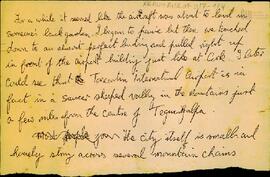 For a while it seemed like the aircraft was about to land in
someone's back garden. I began to panic but then we touched
down to an almost perfect landing and pulled right up
in front of the airport building just like at Cork. I later
could see that Toncontin International Airport is in
fact in a saucer shaped valley in the mountains just
a few miles from the centre of Tegucigalpa
The city itself is small and
 across several mountain chains